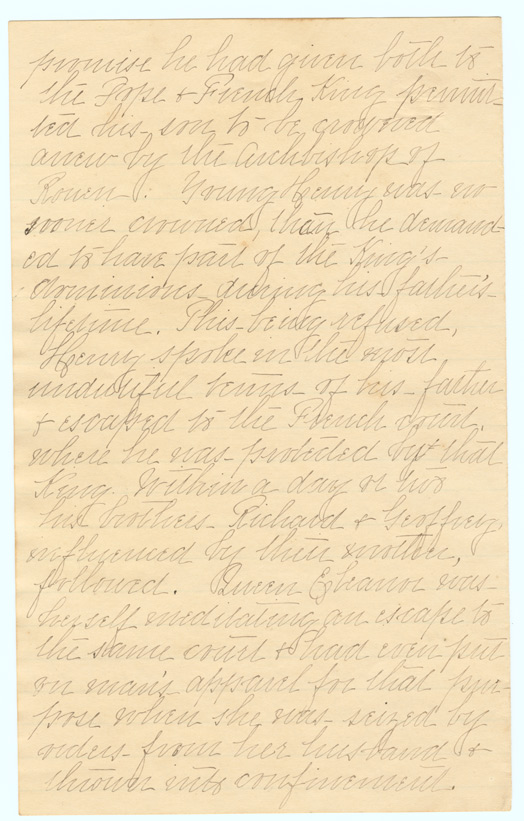 promise he had given both to
the Pope & French King permit-
ted his son to be crowned
anew by the Archbishop of
Rouen. Young Henry was no
sooner crowned, than he demand-
ed to have part of the King's
dominions during his father's
lifetime. This being refused,
Henry spoke in the most
undutiful terms of his father
& escaped to the French court,
where he was protected by that
King. Within a day or two
his brothers Richard & Geoffrey,
influenced by their mother,
followed. Queen Eleanor was
herself meditating an escape to
the same court & had even put
on man's apparel for that pur-
pose when she was seized by
orders from her husband &
thrown into confinement.